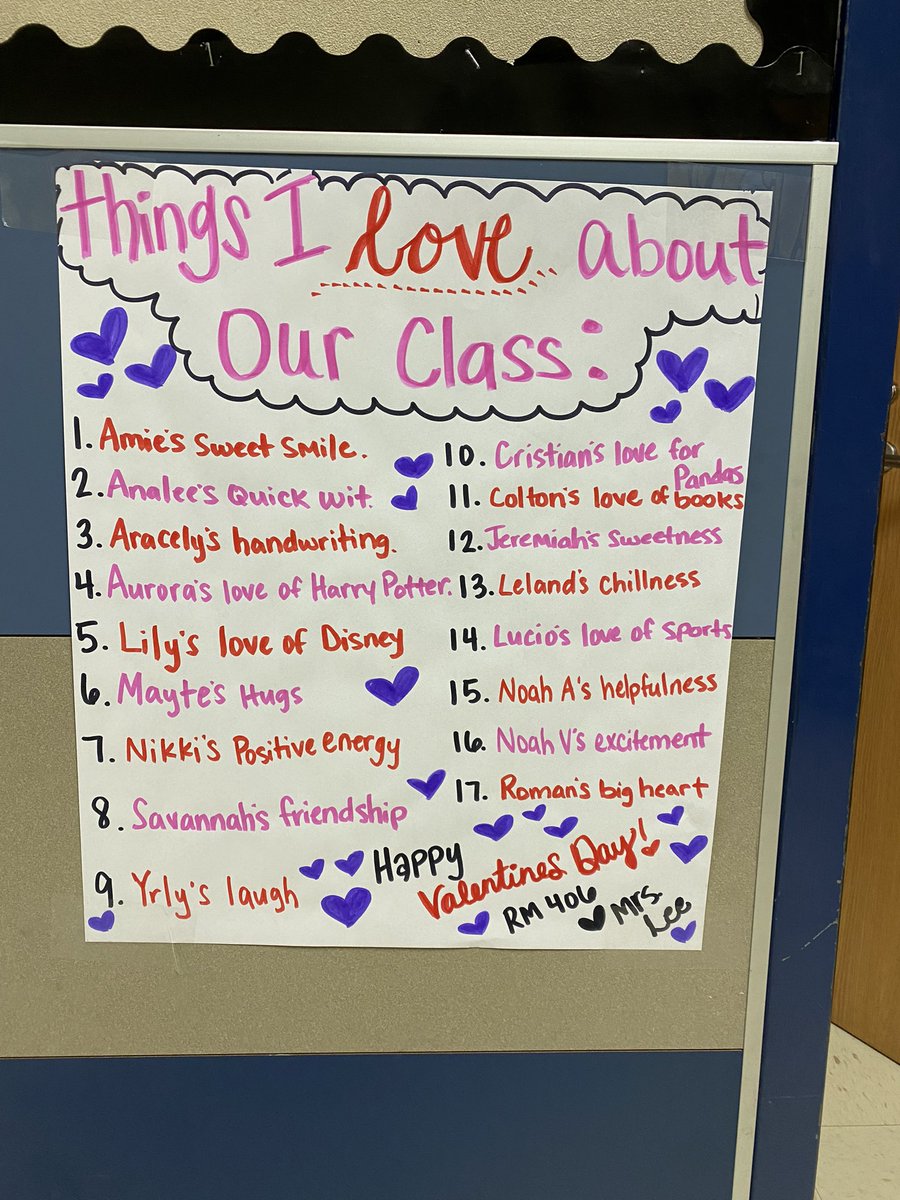 things I love about
Our Class:
1. Amie's sweet smile.
2. Analee's Quick wit.
3. Aracely's handwriting.
4. Aurora's love of Harry Potter.
5. Lily's love of Disney
6. Mayte's Hugs
7. Nikki's Positive energy
8. Savannah's friendship
9. Yrly's laugh
10. Cristian's love for
Pandas
11. Colton's love of books
12. Jeremiah's sweetness
13. Leland's chillness
14. Lucio's love of sports
15. Noah A's helpfulness
16. Noah V's excitement
17. Roman's big heart
Happy
Valentines Day!
RM 406
Mrs.
Lee